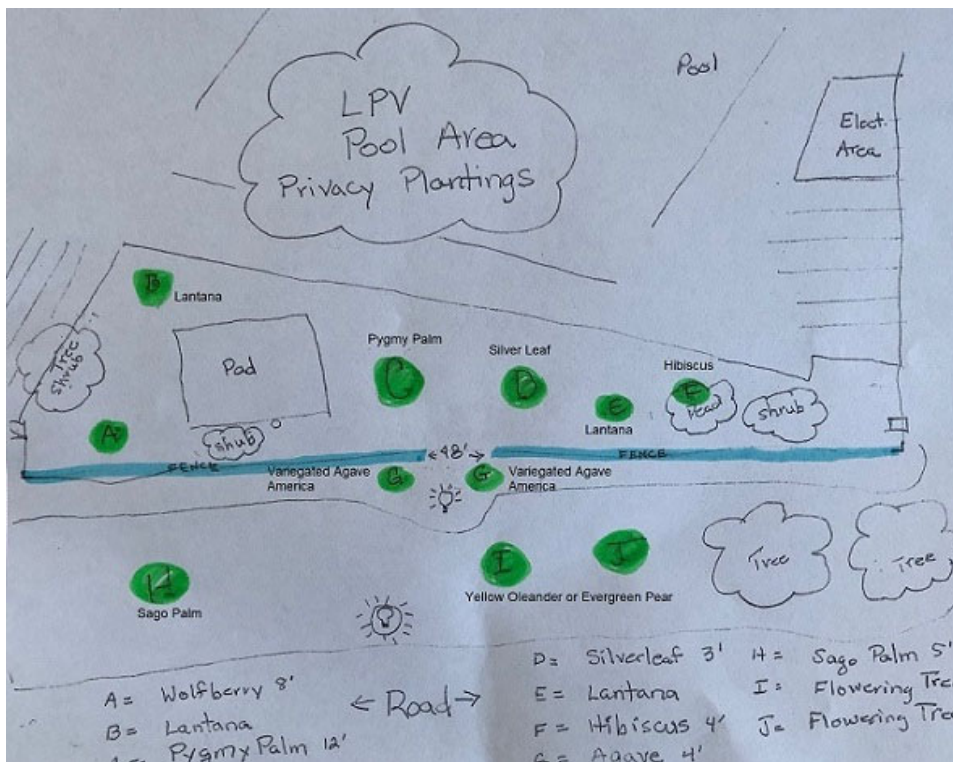 LPV
Pool Area
Privacy Plantings
Pool
Elect.
Area
B
Lantana
Tree
Shrub
Pad
Pygmy Palm
C
Silver Leaf
D
Hibiscus
F
E
Lantana
Dead
shrub
A
shrub
FENCE
←48'→
FENCE
Variegated Agave
America
G
G
Variegated Agave
America
H
Sago Palm
I
J
Yellow Oleander or Evergreen Pear
Tree
Tree
A= Wolfberry 8'
B= Lantana
Pygmy Palm 12'
← Road →
D= Silverleaf 3'
E= Lantana
F= Hibiscus 4'
G= Agave 4'
H= Sago Palm 5'
I= Flowering Tree
J= Flowering Tree